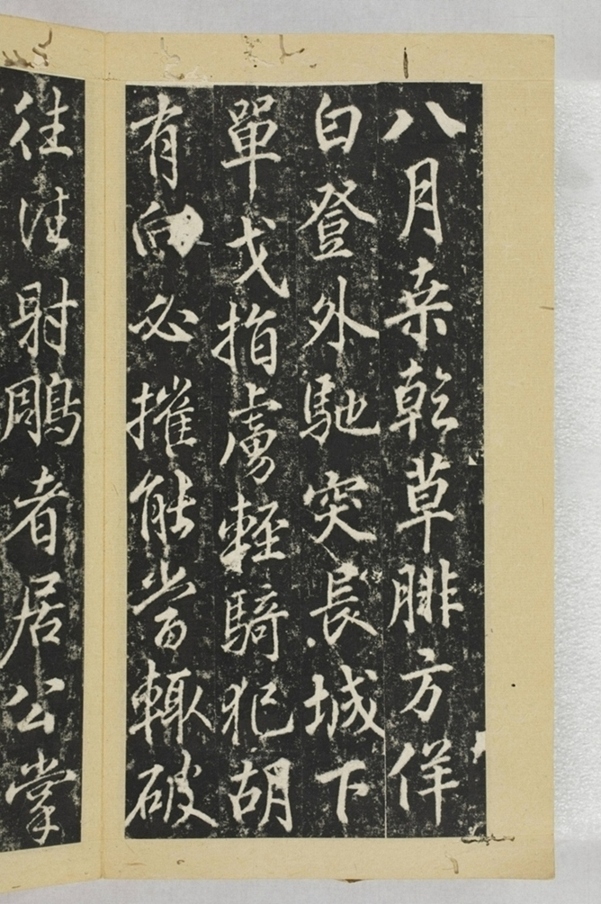 八月桒乾草腓方佯
白登外馳突長城下
單戈指虜輕騎犯胡
有向必摧能當輙破
往往射鵰者居公掌